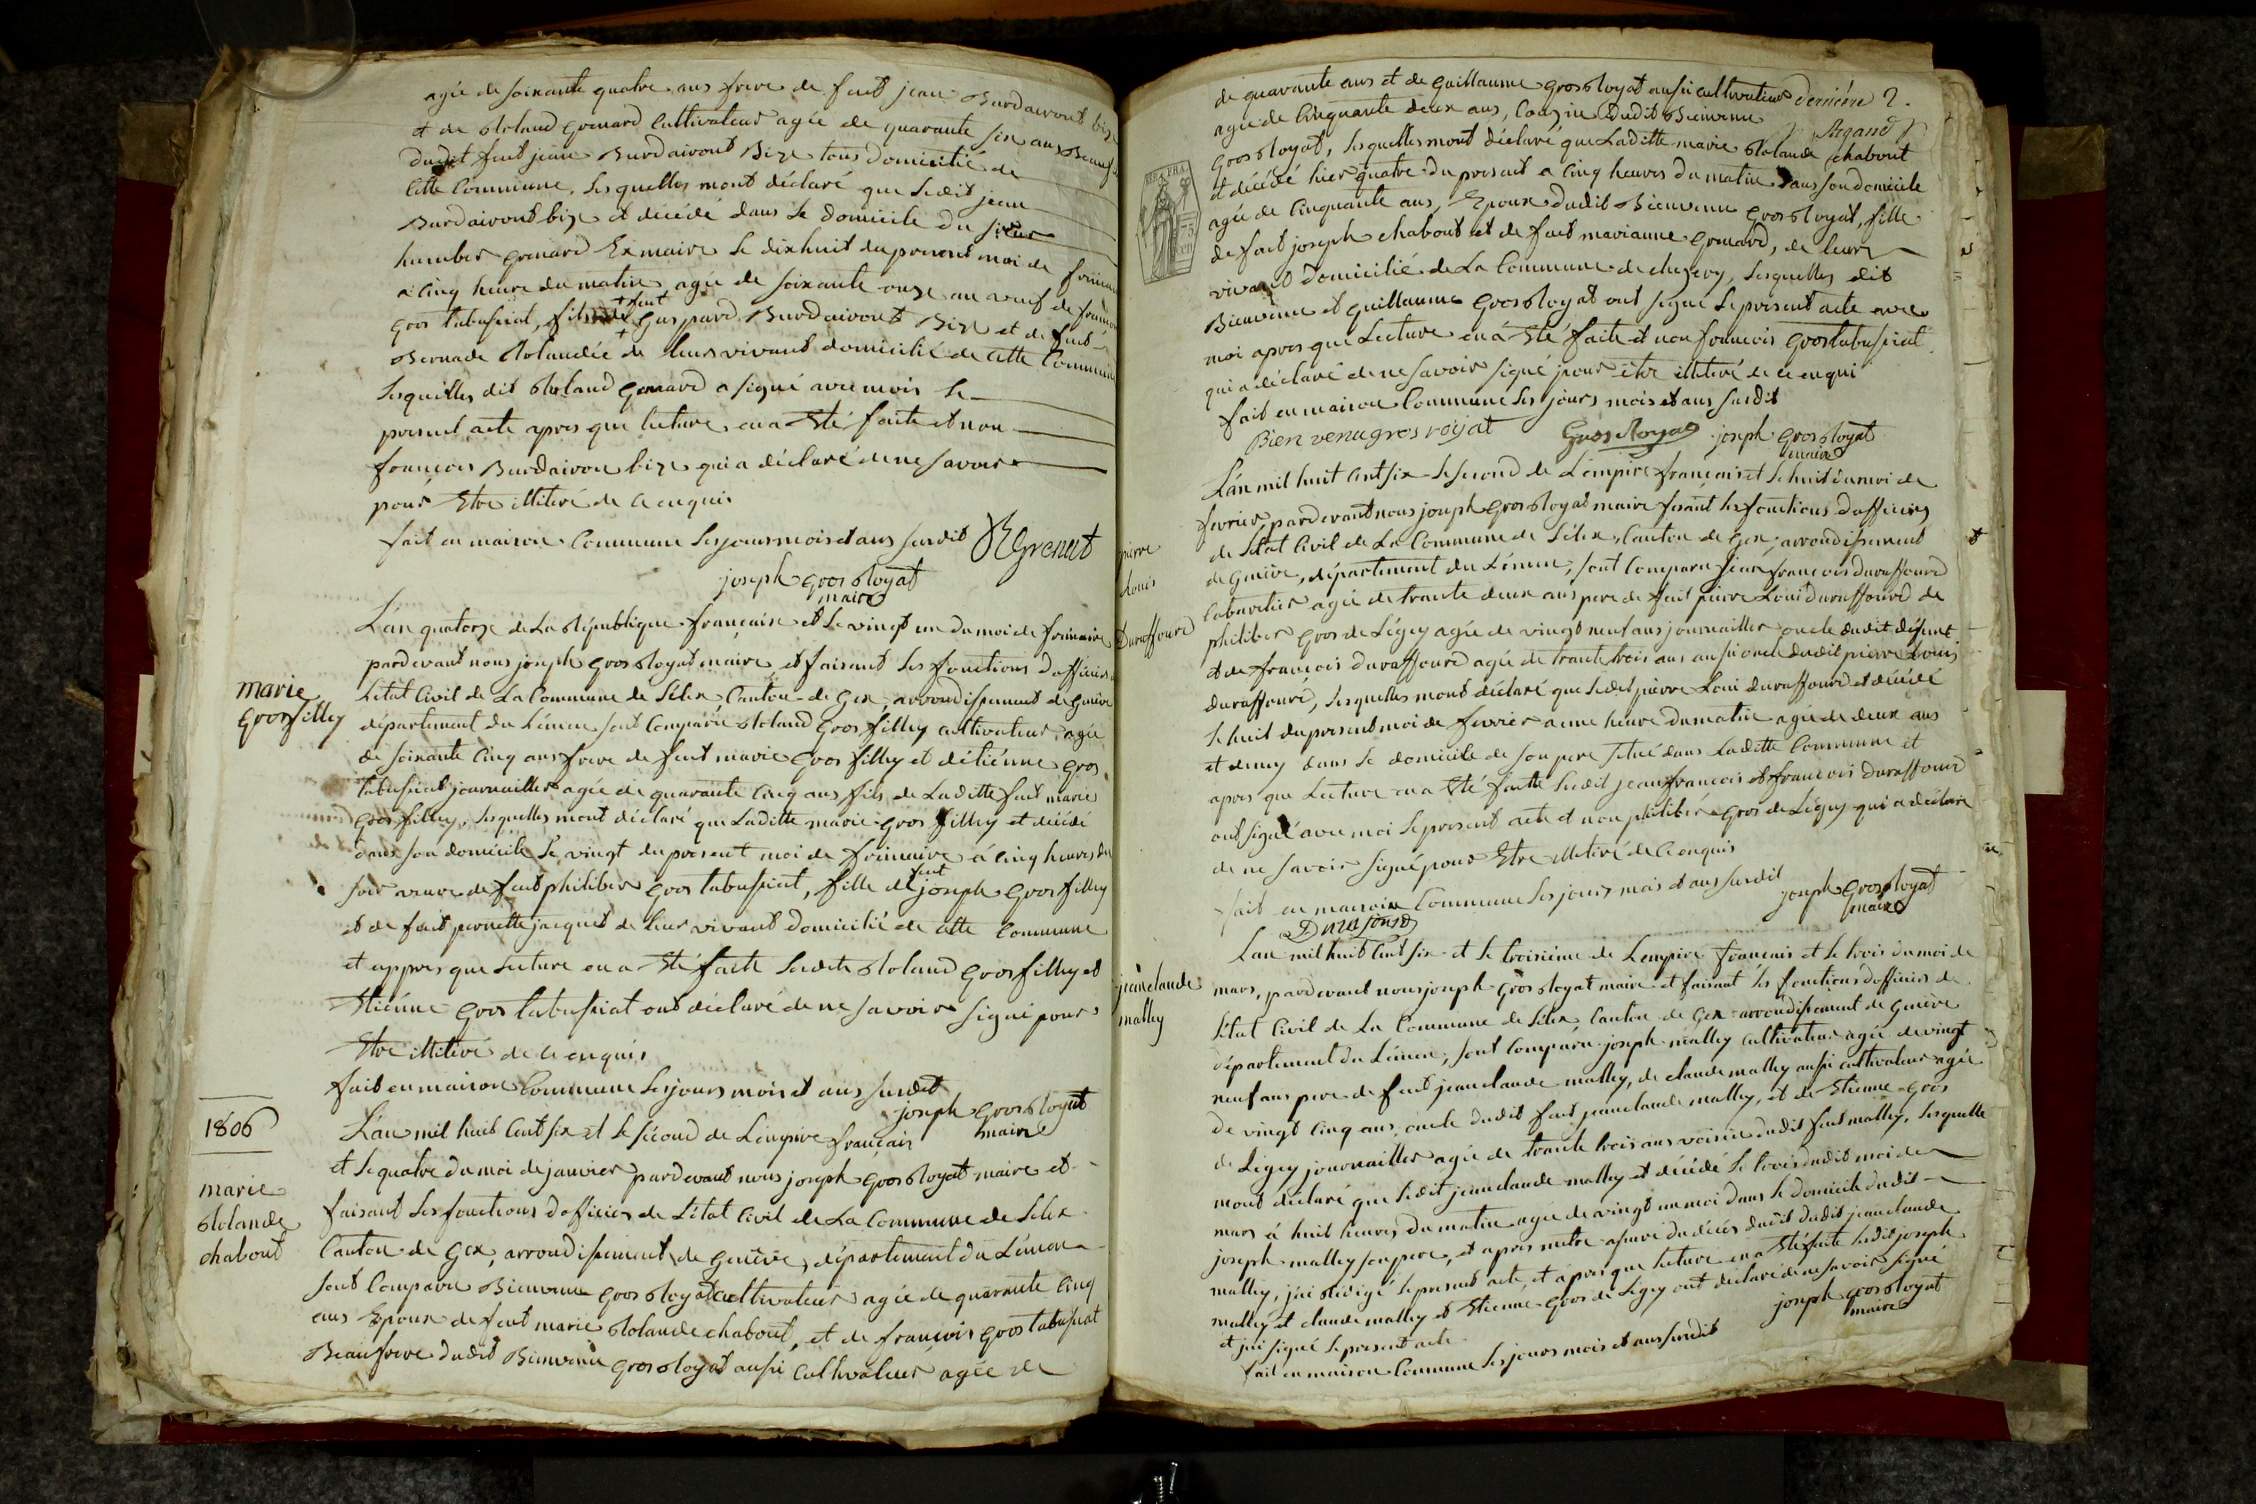 agée de soixante quatre ans frere de feut jean Burdairont bize
et de Roland Grenard Cultivateur agée de quarante six ans Beauf
dudit feut jean Burdairont Bize tous domicilié de
Cette Commune, Lesquelles mont déclaré que Ledit jean
Burdairont bize et décédé dans Le domicile du sieur
humber grenard Exmaire Le dixhuit du present moi de frimair
a cinq heure du matin, agée de soixante onze an
Gros tabussiat, fils de feut Guspard Burdairont Bize et de feut
Bernade Rolandée de leurs vivant domicilié de Cette Commune
Lesquelles dit Roland Grenard a signé avec mois Le
present acte apres que lecture en a Eté faite et non
françois Burdairon bize qui a déclaré de ne savoir
pour Etre illitiré de Ce enquis
fait en maison Commune Les jours mois et ans susdit RGrenat
joseph gros Royat
maire
L'an quatorze de La République française et Le vingt un du moi de frimaire
pardevant nous joseph Gros Royat maire et faisant Les fonctions d'officier
L'etat Civil de La Commune de Lélex Canton de Gex, arrondissement de Genève
marie
Gros filley
département du Léman sont Comparu Roland Gros filley cultivateur, agée
de soixante Cinq ans frere de feut marie Gros filley et d'étiénne gros
tabussiat journaillier agée de quarante Cinq ans fils de Laditte feut marie
Gros filley, Lesquelles mont déclaré que Laditte marie Gros filley et décédé
dans son domicile Le vingt du present moi de frimaire à Cinq heures du
soir veuve de feut philiber Gros tabussiat, fille de feut joseph Gros filley
et de feut pernette jacquet de leur vivant Domicilié de Cette Commune
et appres que Lecture en a Eté faite Ledite Roland Gros filley et
Etiénne Gros tabussiat ont déclaré de ne savoir signé pour
Etre illitiré de Ce enquis
fait en maison Commune Les jours mois et ans susdit
joseph Gros Royat
maire
1806
L'an mil huit Cent six et Le sécond de L'empire français
et Le quatre du moi de janvier pardevant nous joseph Gros Royat maire et
marie
Rolande
chabout
faisant Les fonctions d'officier de L'état Civil de La Commune de Lélex
Canton de Gex, arrondissement de Genève, département du Léman
sont Comparu Bienvenu Gros Royat cultivateur agée de quarante Cinq
ans Epoux de feut marie Rolande chabout, et de françois Gros tabussiat
Beaufrere dudit Bienvenu Gros Royat aussi Cultivateur agée de
de quarante ans et de Guillaume Gros Royat aussi cultivateur derniére 2.
agée de Cinquante deux ans, Cousin Dudit Bienvenu
Gros Royat, Lesquelles mont déclaré que Laditte marie Rolande chabout
et décédé hier quatre du present a cinq heures du matin dans son domicile
agée de Cinquante ans, Epouse dudit Bienvenu Gros Royat, fille
de feut joseph chabout et de feut marianne Grenard, de leurs
vivant Domicilié de La Commune de chezery, Lesquelles dit
Bienvenu et Guillaume Gros Royat ont signé Le present acte avec
moi apres que Lecture en a Eté faite et non francois Gros tabussiat
qui a déclaré de ne savoir signé pour être illitiré de Ce enqui
fait en maison Commune Les jours mois et ans susdit
Bien venu gros royat Gros Royat joseph Gros Royat
maire
L'an mil huit Cent six Le second de L'empire français et Le huit du moi de
fevrier, pardevant nous joseph Gros Royat maire fesant Les fonctions d'officier
pierre
Louis
Duraffourd
de L'état Civil de La Commune de Lélex, Canton de Gex, arrondissement
de Genève, département du Léman, sont Comparu Jean françois duraffourd
Cabaretier agée de trante deux ans pere de feut pierre Loui duraffourd de
philiber Gros de Légey agée de vingt neuf ans journaillier oncle dudit défunt
et de françois duraffourd agée de trante trois ans aussi oncle dudit pierre Louis
duraffourd, Lesquelles mont déclaré que Ledit pierre Loui duraffourd et décédé
Le huit du present moi de fevrier a une heure du matin agée de deux ans
et demy dans Le domicile de son pere situé dans Laditte Commune et
apres que Lecture en a Eté faitte Ledit jean françois et françois duraffourd
ont signé avec moi Le present acte et non philiber Gros de Légey qui a déclaré
de ne savoir signé pour Etre illitiré de Ce enquis
fait en maison Commune Les jours mois et ans susdit
joseph Gros Royat
maire
Durafourd
L'an mil huit Cent six et Le troisième de L'empire français et Le trois du moi de
jean claude
malley
mars, pardevant nous joseph Gros Royat maire et faisant Les fonctions d'officier de
L'état Civil de La Commune de Lélex Canton de Gex arrondissement de Genève
département du Léman, sont Comparu joseph malley cultivateur agée de vingt
neuf ans pere de feut jean claude malley, de claude malley aussi cultivateur agée
de vingt Cinq ans oncle dudit feut jean claude malley, et de Etienne Gros
de Légey journaillier agée de trante trois ans voisin dudit feut malley, Lesquelle
mont déclaré que Ledit jean claude malley et décédé Le trois dudit moi de
mars à huit heures du matin agée de vingt un moi dans Le domicile dudit
joseph malley son pere, et apres metre assuré du décès dudit dudit jean claude
malley, j'ai Rédigé Le present acte, et apres que Lecture en a Eté faite Ledit joseph
malley et claude malley et Etienne Gros de Légey ont declaré de ne savoir signé
et j'ai signé Le present acte
joseph Gros Royat
maire
fait en maison Commune Les jours mois et ans susdit